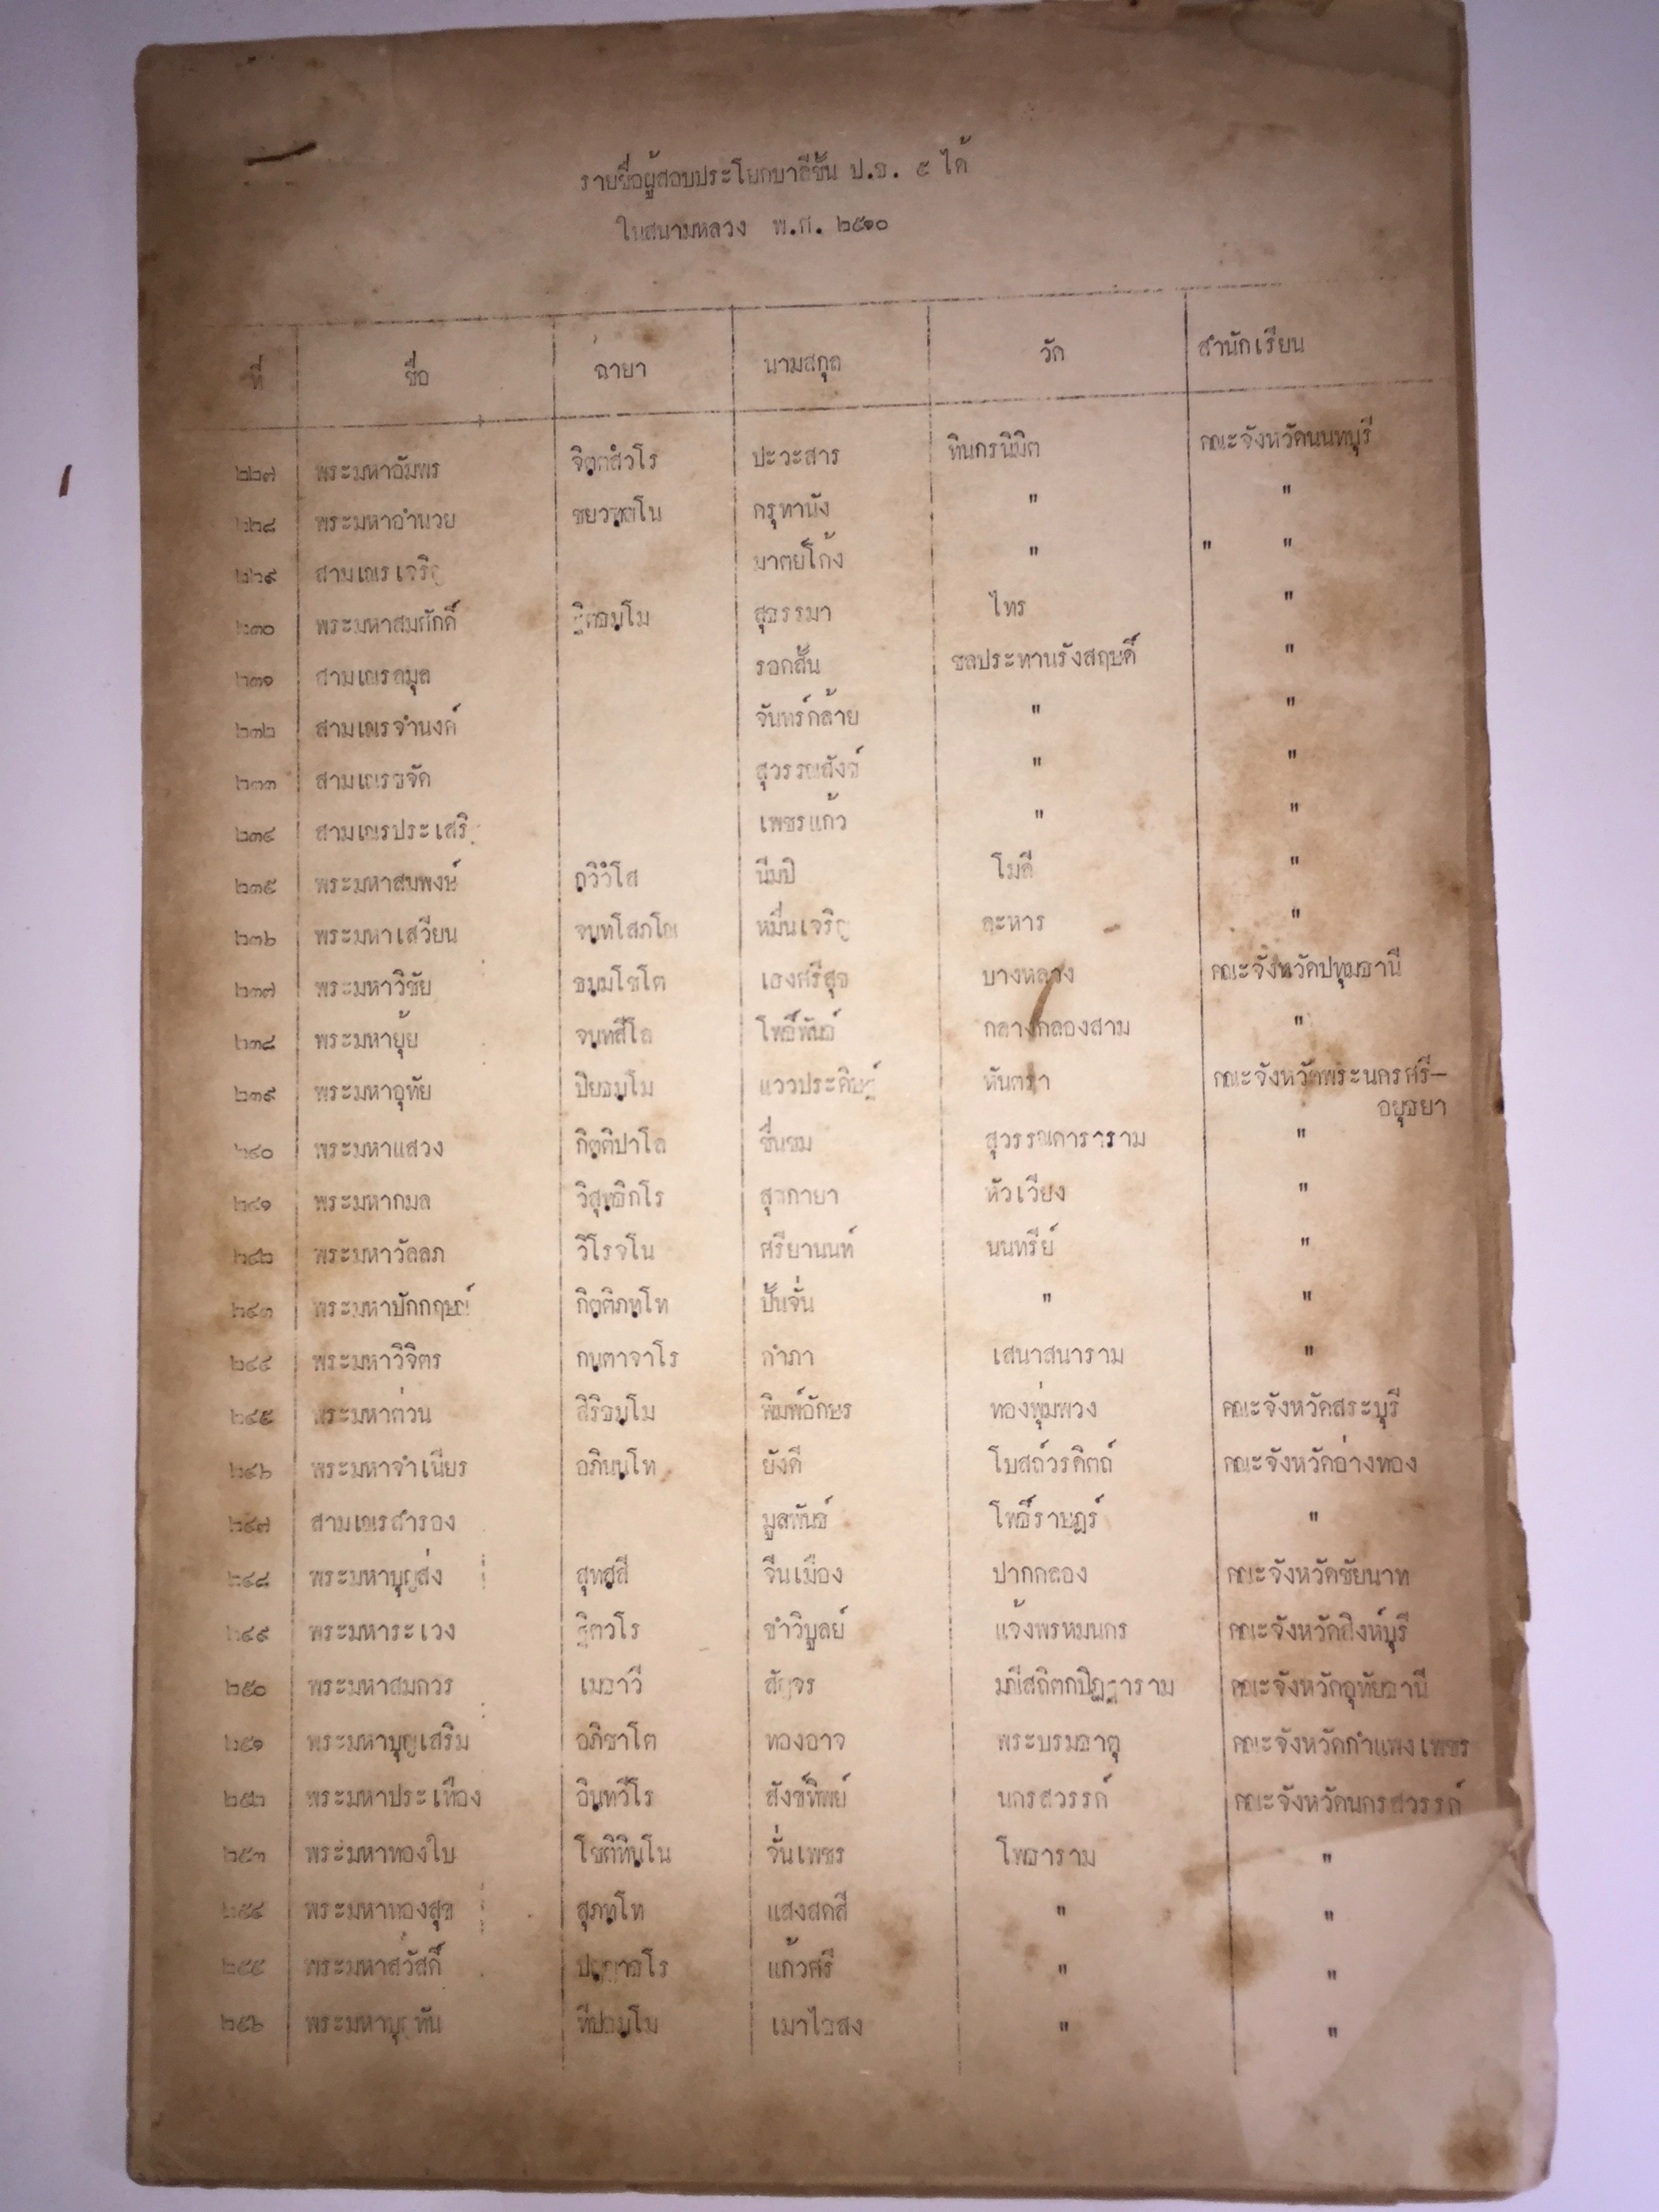 รายชื่อผู้สอบประโยคบาลีชั้น ป.ธ. ๕ ได้
ในสนามหลวง พ.ศ. ๒๕๑๐
ที่ ชื่อ ฉายา นามสกุล วัด สำนักเรียน
๒๒๗ พระมหาอัมพร จิตฺตสํวโร ปะวะสาร ทินกรนิมิต คณะจังหวัดนนทบุรี
๒๒๘ พระมหาอำนวย ครุฑานัง " "
๒๒๙ สามเณรเจริญ มาตย์โก้ง " " "
๒๓๐ พระมหาสมศักดิ์ ฐิตธมฺโม สุธรรมา ไทร "
๒๓๑ สามเณรลมุล รอกสั้น ชลประทานรังสฤษดิ์ "
๒๓๒ สามเณรจำนงค์ จันทร์กล้าย " "
๒๓๓ สามเณรขจัด สุวรรณสังข์ " "
๒๓๔ สามเณรประเสริฐ เพชรแก้ว " "
๒๓๕ พระมหาสมพงษ์ ถวิวํโส นีมปิ โมลี "
๒๓๖ พระมหาเสวียน จนฺทโสภโณ หมื่นเจริญ ละหาร "
๒๓๗ พระมหาวิชัย ธมฺมโชโต เฮงศรีสุข บางหลวง คณะจังหวัดปทุมธานี
๒๓๘ พระมหายุ้ย จนฺทสีโล โพธิ์พันธ์ กลางคลองสาม "
๒๓๙ พระมหาอุทัย ปิยธมฺโม แววประดิษฐ์ หันตรา คณะจังหวัดพระนครศรี–
อยุธยา
๒๔๐ พระมหาแสวง กิตฺติปาโล ชื่นชม สุวรรณดาราราม "
๒๔๑ พระมหากมล วิสุทฺธิกโร สุขกายา หัวเวียง "
๒๔๒ พระมหาวัลลภ วิโรจโน ศรียานนท์ นนทรีย์ "
๒๔๓ พระมหาปักกฤษณ์ กิตฺติภทฺโท ปั้นจั่น " "
๒๔๔ พระมหาวิจิตร กนฺตาจาโร กำภา เสนาสนาราม "
๒๔๕ พระมหาต่วน สิริธมฺโม พิมพ์อักษร ทองพุ่มพวง คณะจังหวัดสระบุรี
๒๔๖ พระมหาจำเนียร อภินนฺโท ยังดี โบสถ์วรดิตถ์ คณะจังหวัดอ่างทอง
๒๔๗ สามเณรสำรอง มูลพันธ์ โพธิ์ราษฎร์ "
๒๔๘ พระมหาบุญส่ง สุทสฺสี จีนเมือง ปากคลอง คณะจังหวัดชัยนาท
๒๔๙ พระมหาระเวง ฐิตวโร ขำวิบูลย์ แจ้งพรหมนคร คณะจังหวัดสิงห์บุรี
๒๕๐ พระมหาสมควร เมธาวี สัญจร มณีสถิตกปิฏฐาราม คณะจังหวัดอุทัยธานี
๒๕๑ พระมหาบุญเสริม อภิชาโต ทองอาจ พระบรมธาตุ คณะจังหวัดกำแพงเพชร
๒๕๒ พระมหาประเทือง อินฺทวีโร สังข์ทิพย์ นครสวรรค์ คณะจังหวัดนครสวรรค์
๒๕๓ พระมหาทองใบ โชติทินฺโน จั่นเพชร โพธาราม "
๒๕๔ พระมหาทองสุข สุภทฺโท แสงสดสี " "
๒๕๕ พระมหาสวัสดิ์ แก้วศรี " "
๒๕๖ พระมหาบุญทัน ทีปธมฺโม เมาไธสง " "